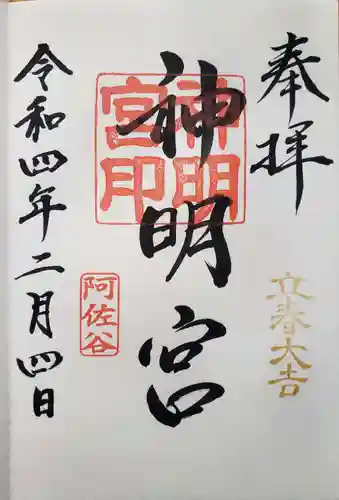 奉拝
立春大吉
神明宮
神明宮印
阿佐谷
令和四年二月四日